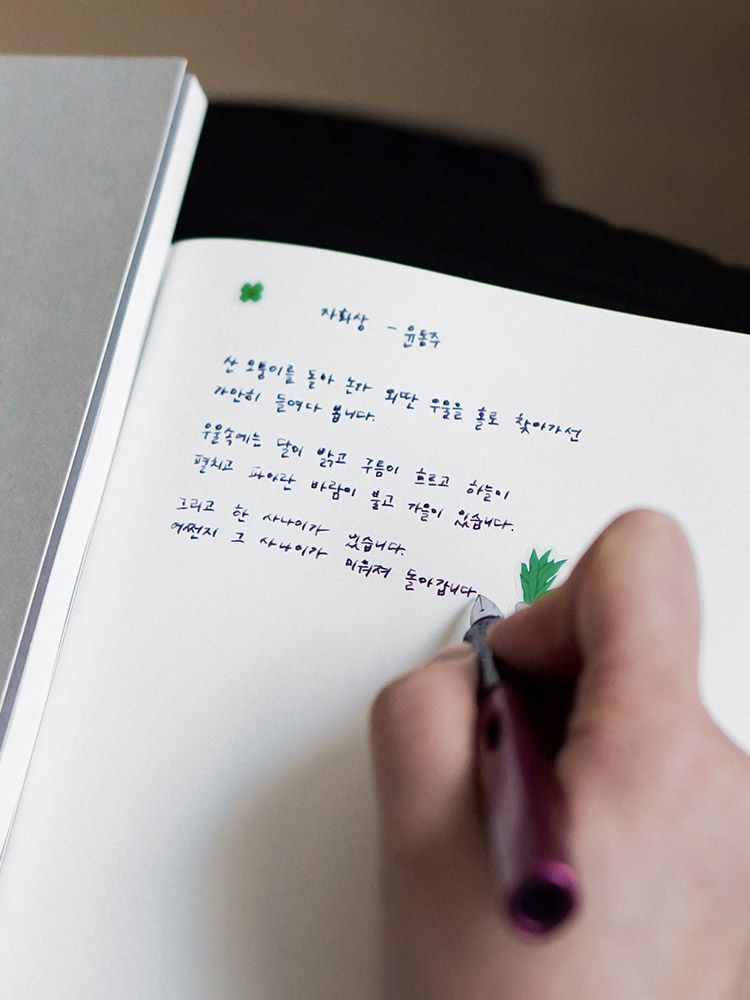 자화상 - 윤동주
산 모퉁이를 돌아 논가 외딴 우물을 홀로 찾아가선
가만히 들여다 봅니다.
우물속에는 달이 밝고 구름이 흐르고 하늘이
펼치고 파아란 바람이 불고 가을이 있습니다.
그리고 한 사나이가 있습니다.
어쩐지 그 사나이가 미워져 돌아갑니다.